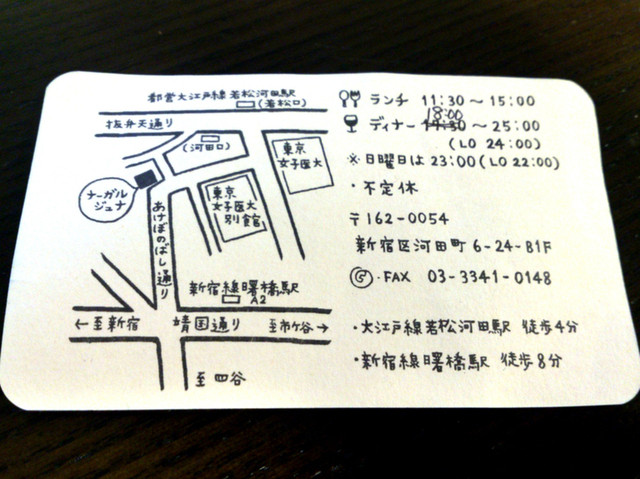 都営大江戸線若松河田駅
(若松口)
抜弁天通り
(河田口)
東京
女子医大
東京
女子医大
別館
ナーガル
ジュナ
あけぼのばし通り
新宿線曙橋駅
A2
←至新宿
靖国通り
至市ヶ谷→
至四谷
ランチ 11:30〜15:00
18:00
ディナー 17:30〜25:00
(LO 24:00)
※日曜日は23:00(LO 22:00)
・不定休
〒162-0054
新宿区河田町6-24-B1F
・FAX 03-3341-0148
・大江戸線若松河田駅 徒歩4分
・新宿線曙橋駅 徒歩8分